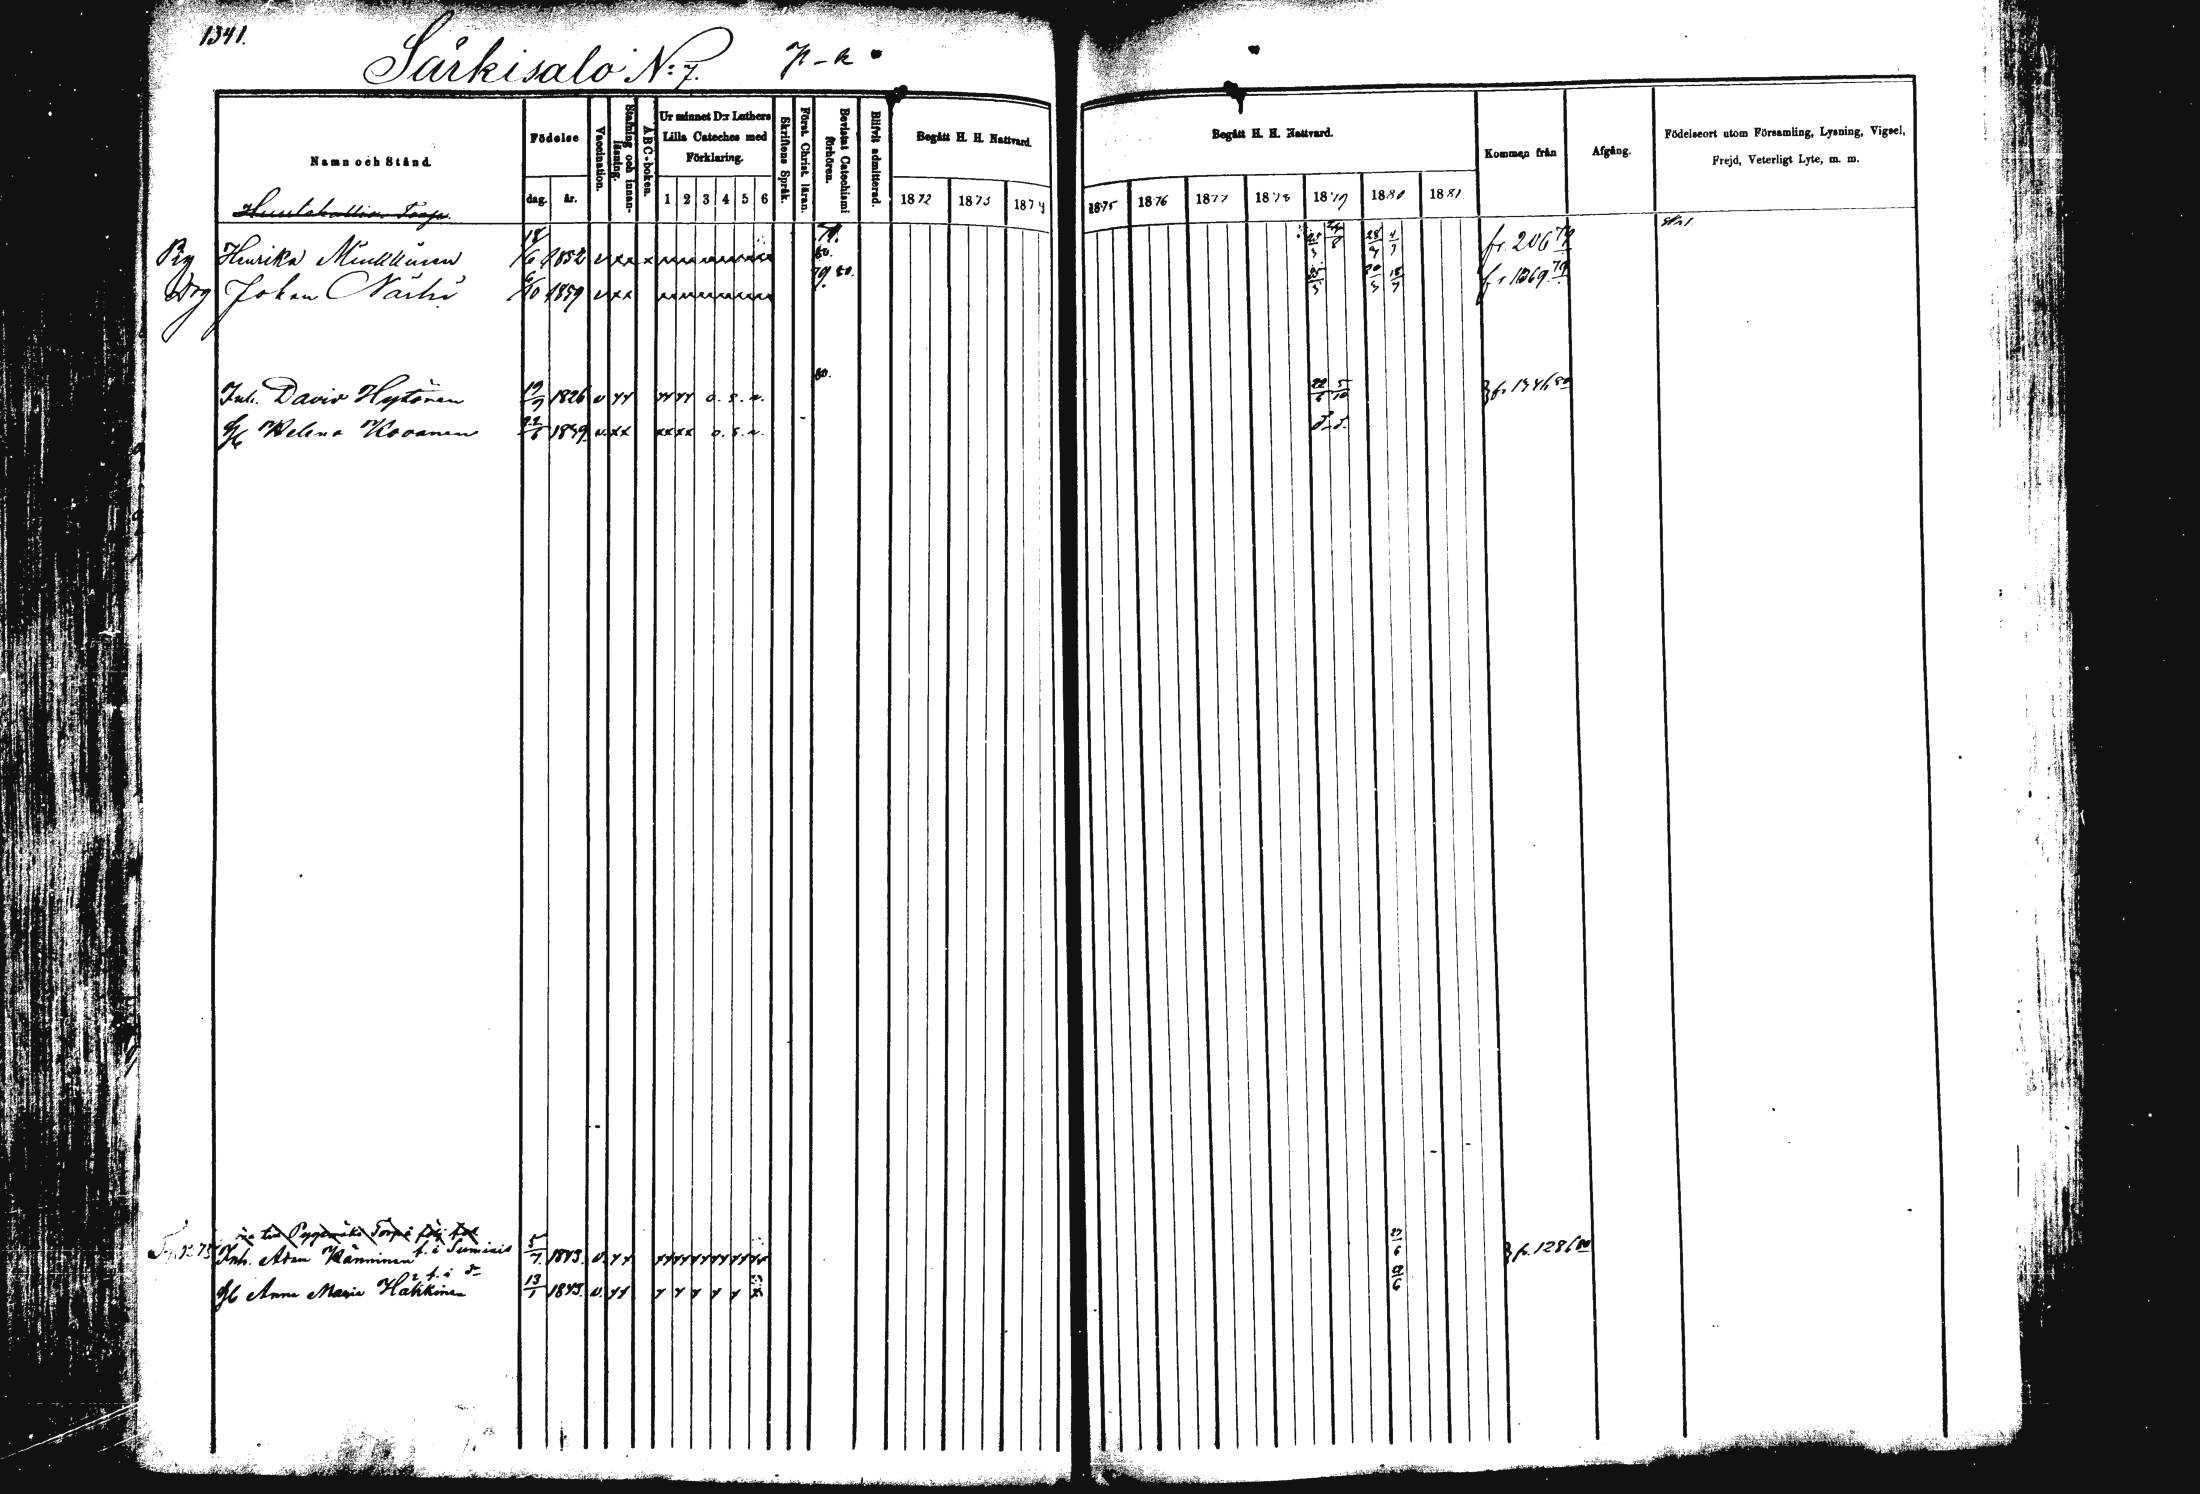 1341.
Särkisalo N:7. p-k
Namn och Stånd.
Födelse
dag. år.
Vaccination.
Stafning och innan-läsning.
ABC-boken.
Ur minnet D:r Luthers Lilla Cateches med Förklaring.
1 2 3 4 5 6
Skriftens Språk.
Förat. Christ. läran.
Bevistat Catechismi förhören.
Blifvit admitterad.
Begått H. H. Nattvard.
1872 1873 1874
Begått H. H. Nattvard.
1875 1876 1877 1878 1879 1880 1881
Kommen från
Afgång.
Födelseort utom Församling, Lysning, Vigsel,
Frejd, Veterligt Lyte, m. m.
Pig Henrika Minkkinen 18/6 1852 v xx x 79. 80. fr. 206 79
Drg Johan Närhi 6/10 1859 v xx 79 80. fr 1269 79
Inh. David Hytönen 19/9 1826 v xx xx xx o. s. v. 80. 22/6 5/10 fr. 1346 80
H Helena Kovanen 22/6 1839 v. xx xx xx o. s. v. d-d-
Inh. Adam Känninen f. i Sumiais 5/7 1843. v. xx 27/6 fr. 1286 80
H Anna Maria Hakkinen f. i d- 13/1 1843. v. xx 27/6